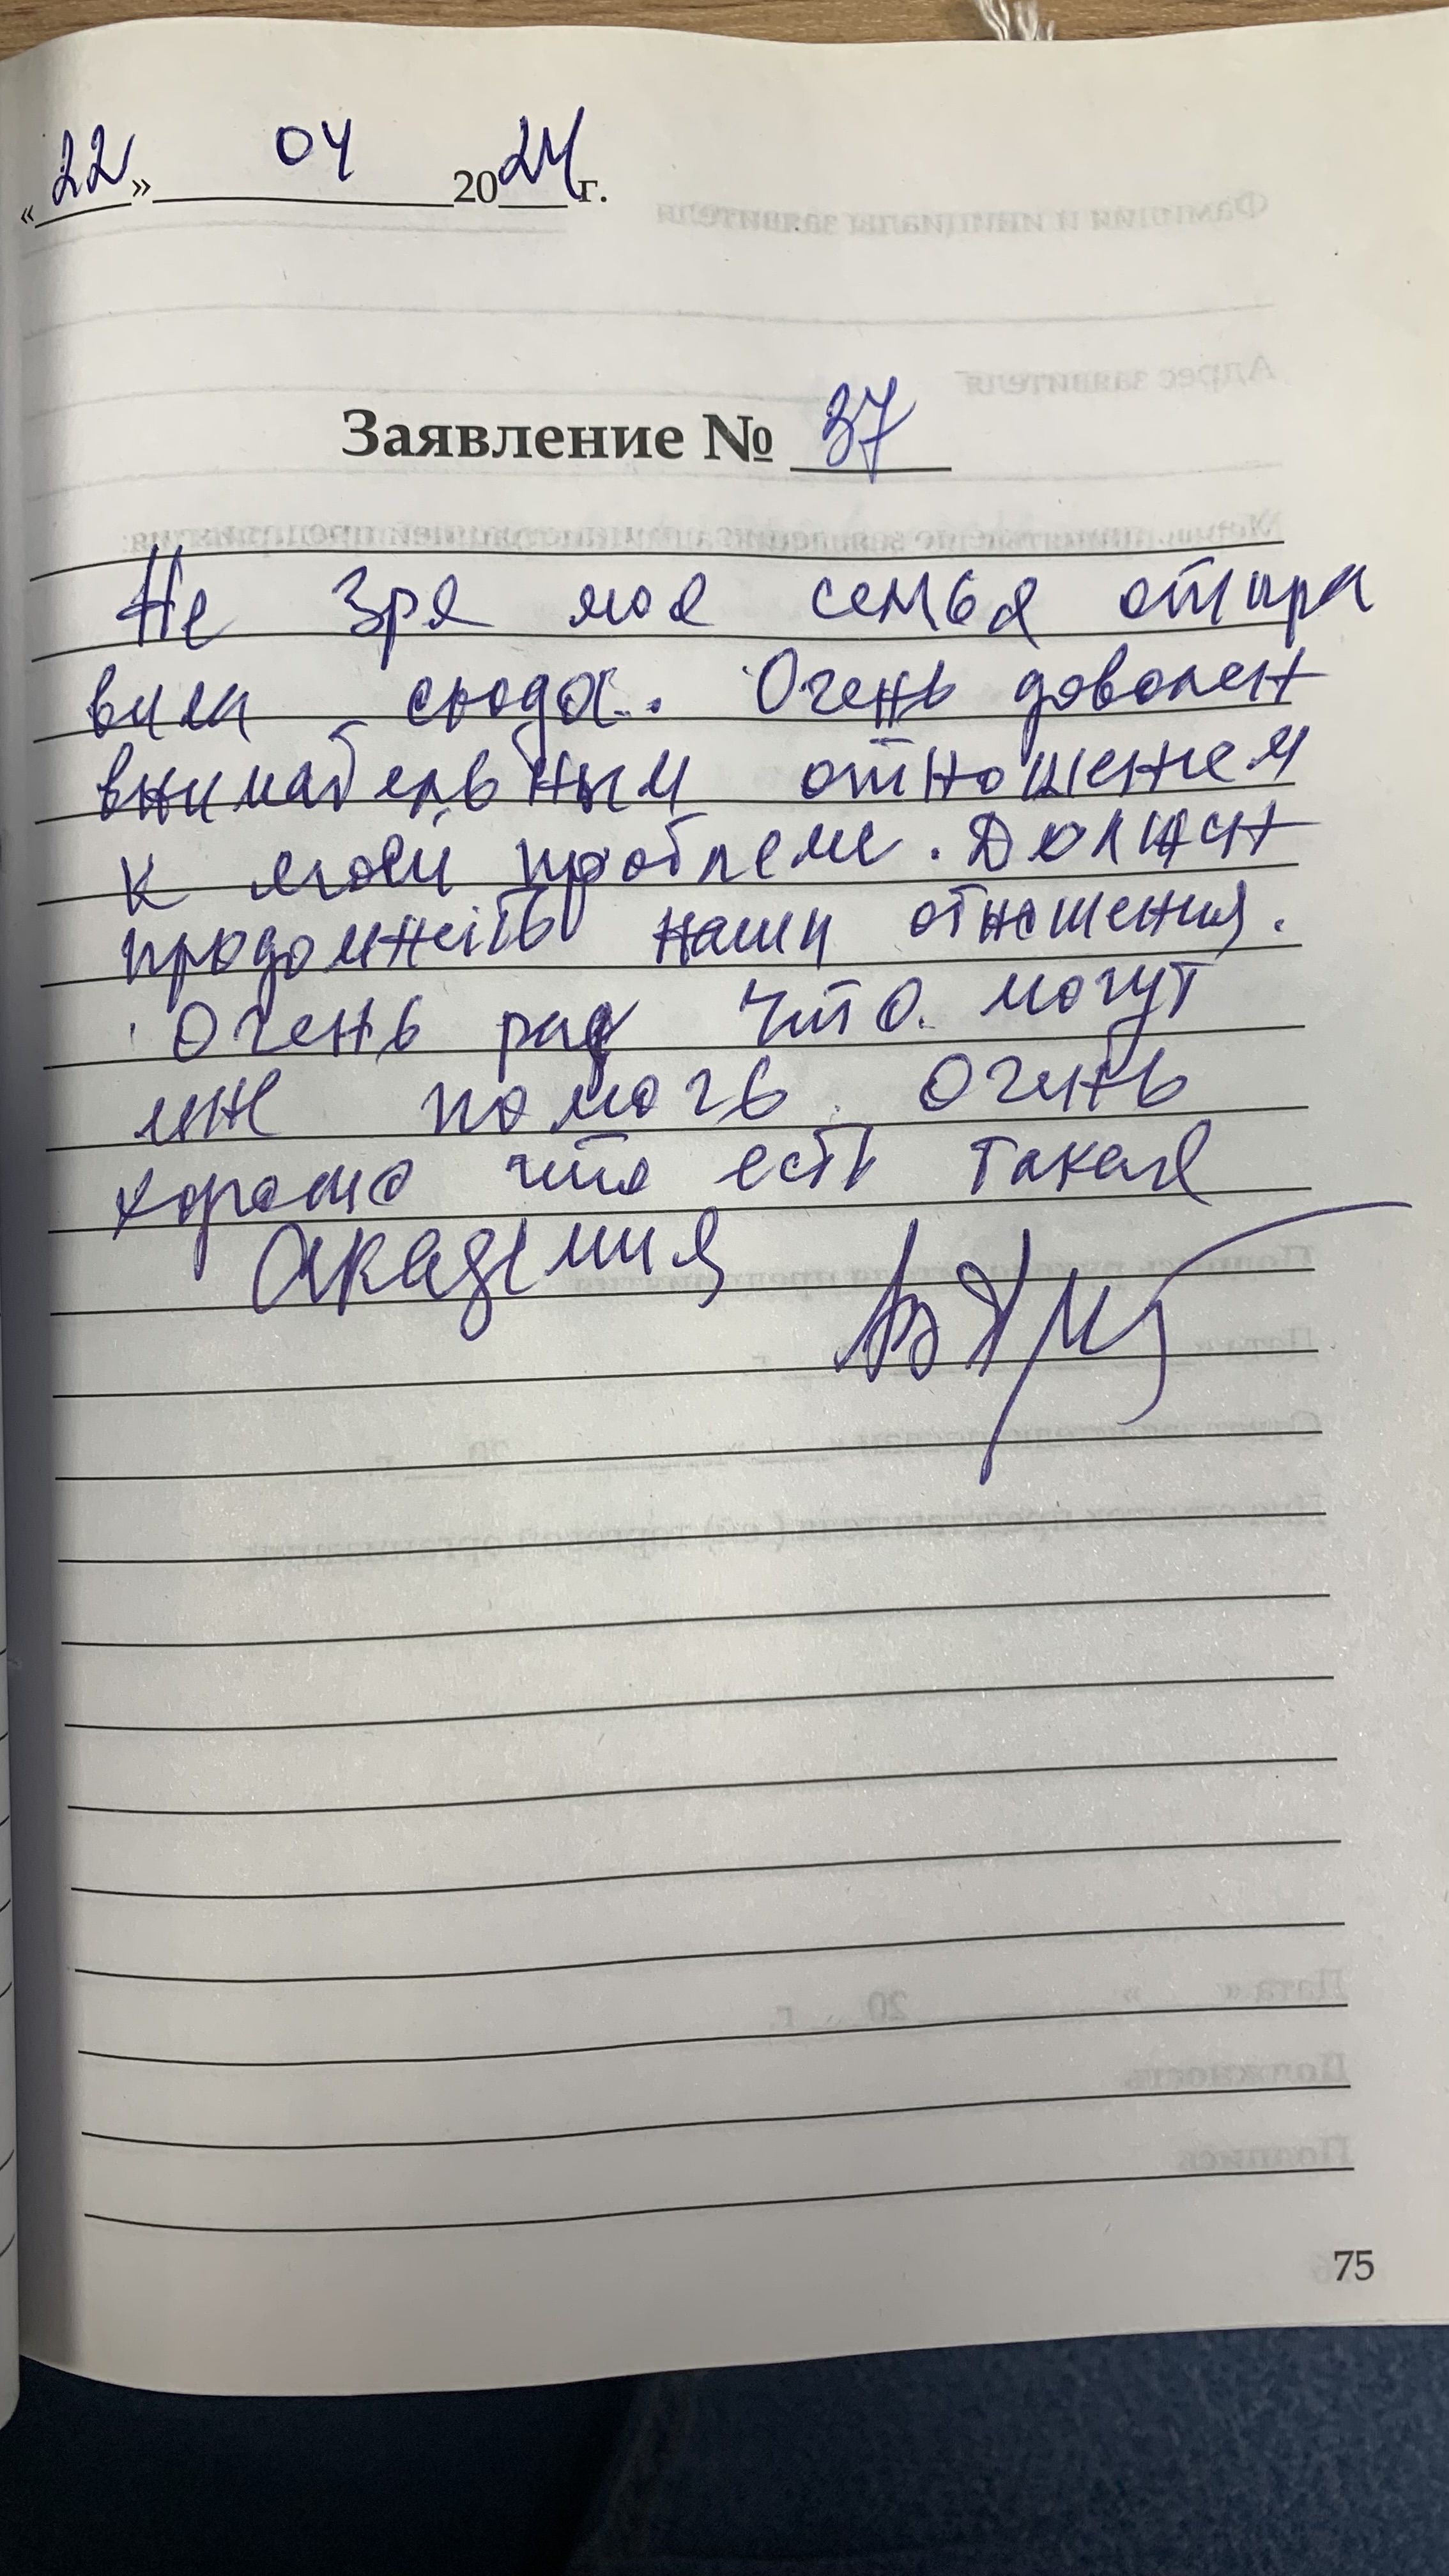 «22» 04 2024 г.
Заявление № 37
Не зря моя семья отпра
вила сюда. Очень доволен
внимательным отношенем
к моей проблеме. Должен
продолжить наши отношения.
Очень рад что могут
мне помочь. Очень
хорошо что есть такая
Академия
75